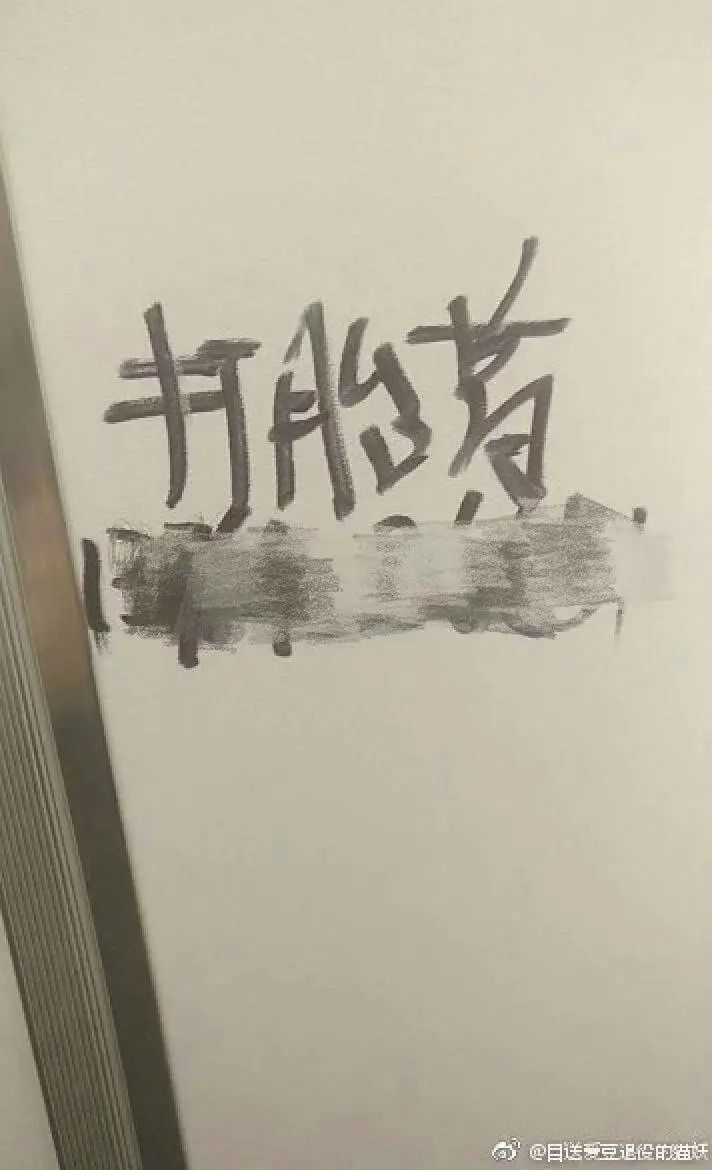 打胎药
@目送爱豆退役的猫妖